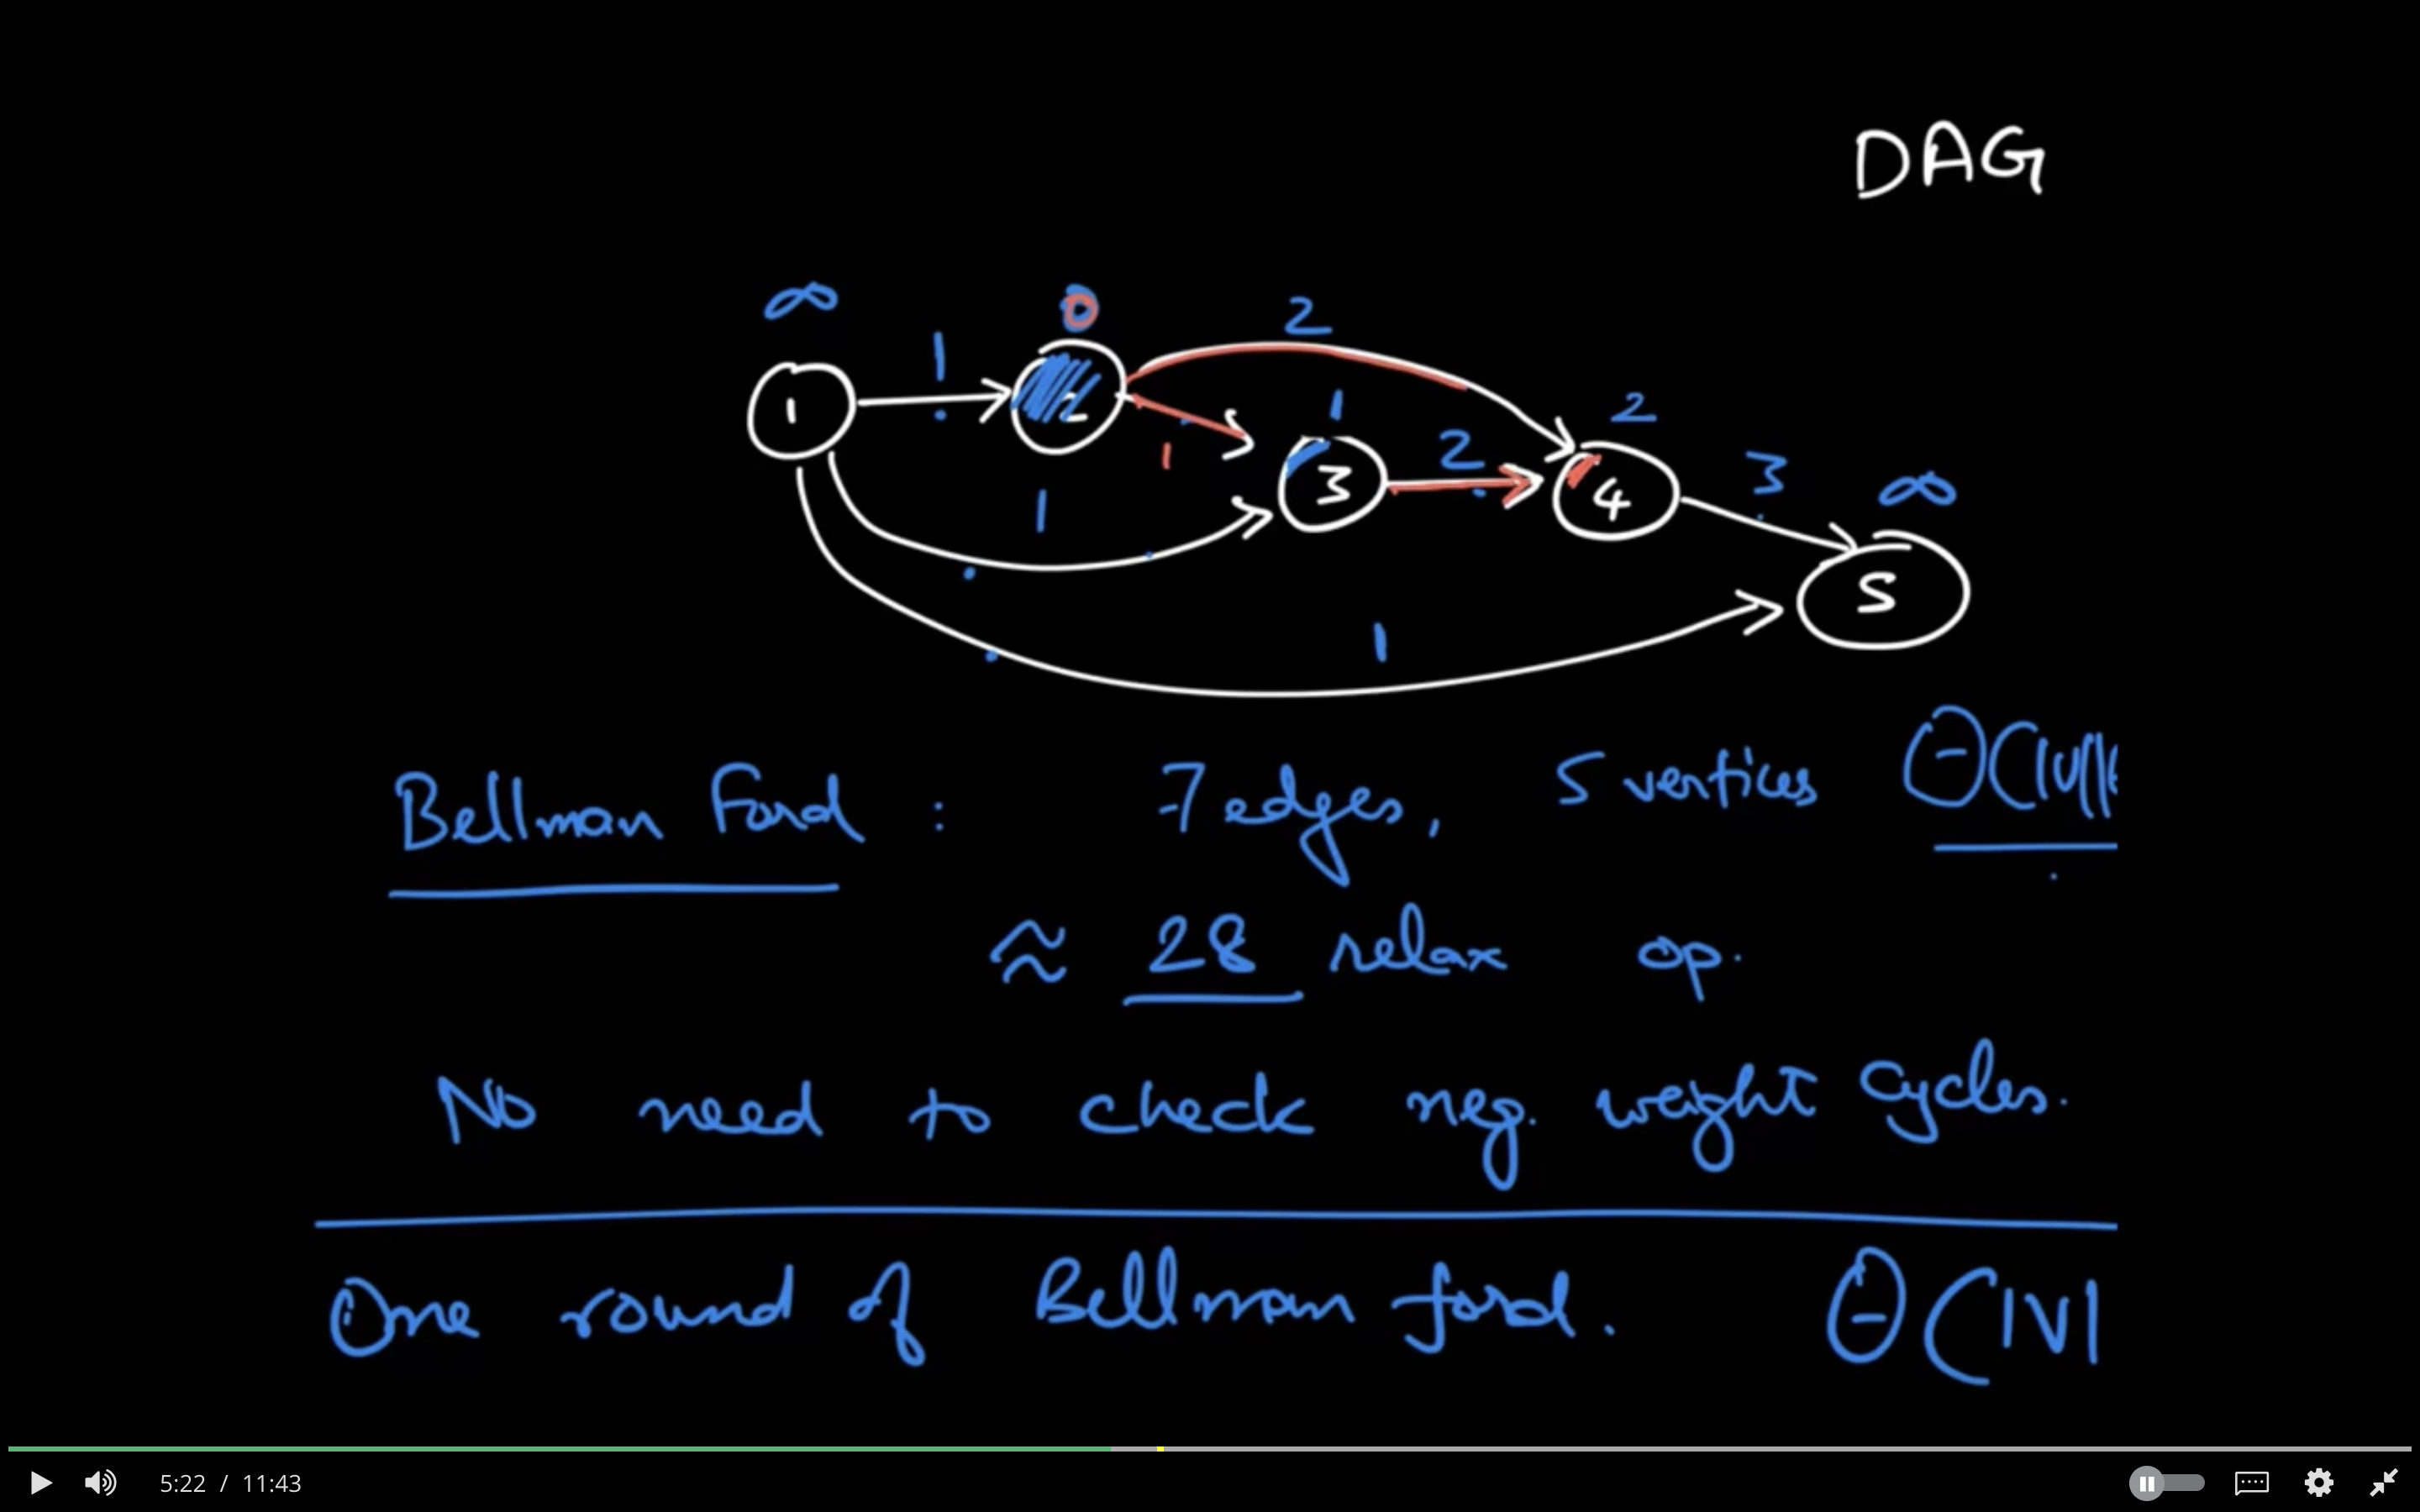 DAG
∞ 0 2
1
1 2 1 2
2 3 4 3 ∞
1 1 5
1
Bellman Ford : 7 edges, 5 vertices Θ(|V||
≈ 28 relax op.
No need to check neg. weight cycles.
One round of Bellman ford. Θ(|V|
5:22 / 11:43